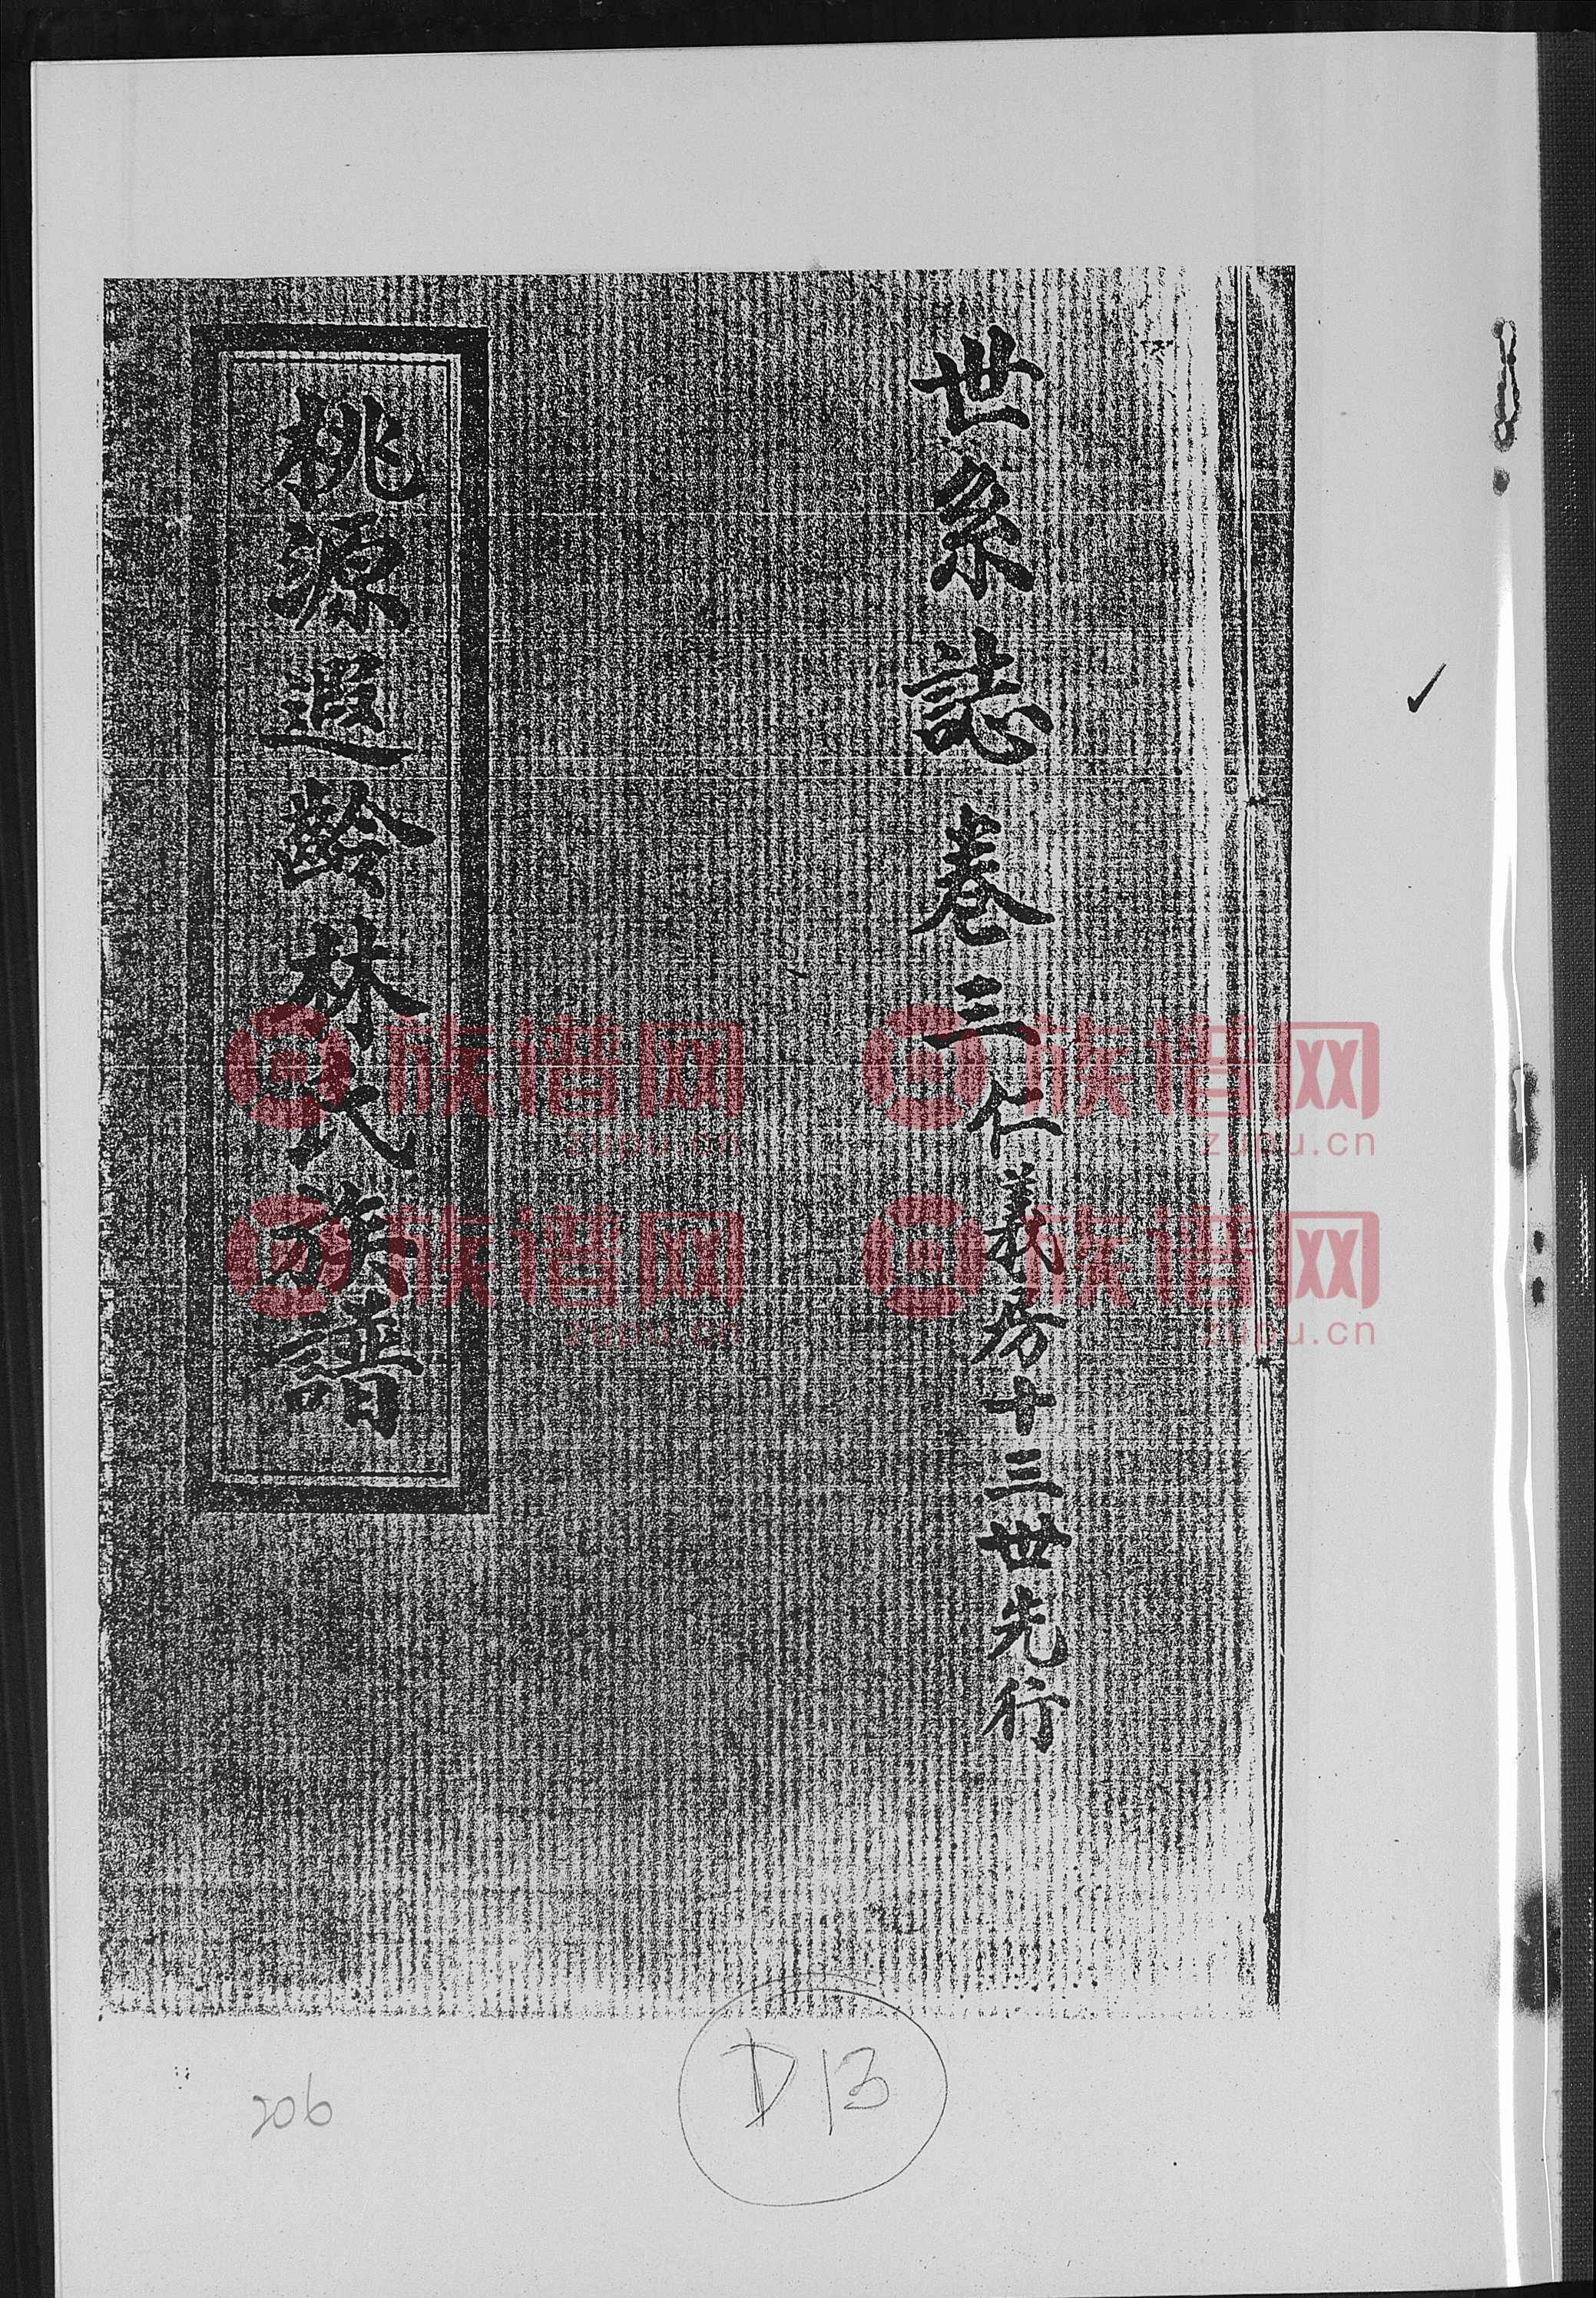 世系誌卷三仁義房十三世先行
桃源遐齡林氏族譜
族谱网 族谱网
zupu.cn zupu.cn
族谱网 族谱网
zupu.cn zupu.cn
206
D13